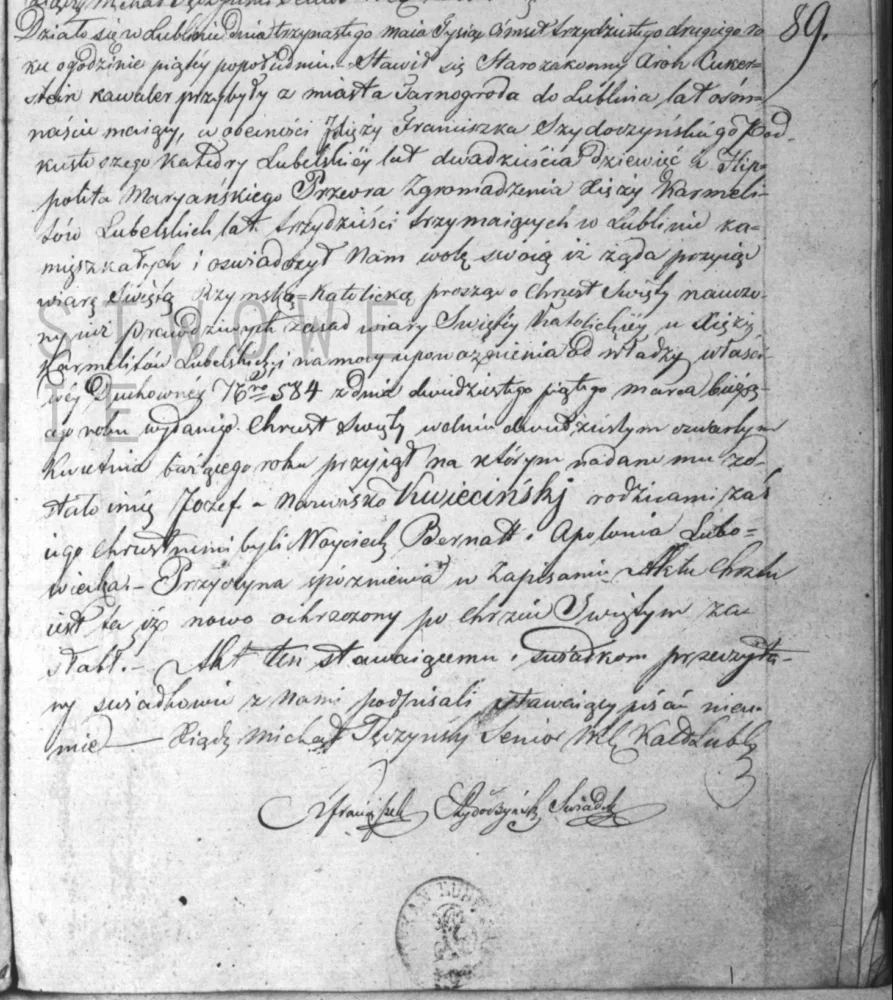 89.
Działo się w Lublinie dnia trzynastego maia Tysiąc Ośmset trzydziestego drugiego ro
ku o godzinie piątéy popołudniu. Stawił się Starozakonny Aroh Cukier=
stein kawaler przybyły z miasta Tarnogroda do Lublina, lat ośm=
naście maiący, w obecności Xięży Franciszka Szydoczyńskiégo Pod
kustoszego Katedry Lubelskiéy lat dwadzieścia dziewięć i Hip=
polita Maryańskiego Przeora Zgromadzenia Xięży Karmeli=
tów Lubelskich lat trzydzieści trzy maiących w Lublinie za=
mięszkałych i oswiadczył Nam wolę swoią iż żąda przyiąć
wiarę Świętą Rzymską=Katolicką prosząc o Chrzest Święty nauczo=
ny iuż prawdziwych zasad wiary Swiętéy Katolickiéy u Xięży
Karmelitów Lubelskich, i na mocy upoważnienia od władzy właści=
wéy Duchownéy No 584 z dnia dwudziestego piątego marca bieżą=
cego roku wydanégo Chrzest Swięty w dniu dwudziestym czwartym
Kwietnia bieżącego roku przyiął na którym nadane mu zo=
stało imię Jozef a Nazwisko Kwieciński rodzicami zaś
iego chrzestnemi byli Woyciech Bernatt i Apolonia Lubo=
wiecka.- Przyczyna spóznienia w Zapisaniu Aktu Chrztu
iest ta iż nowo ochrzczony po Chrzcie Swiętym za=
słabł.- Akt ten stawaiącemu i swiadkom przeczyta=
ny swiadkowie z Nami podpisali stawaiący pisać nieu=
mie — Xiądz Michał Tęczyński Senior Wik Kated Lubl
Xfranciszek Szydoczyński Swiadek